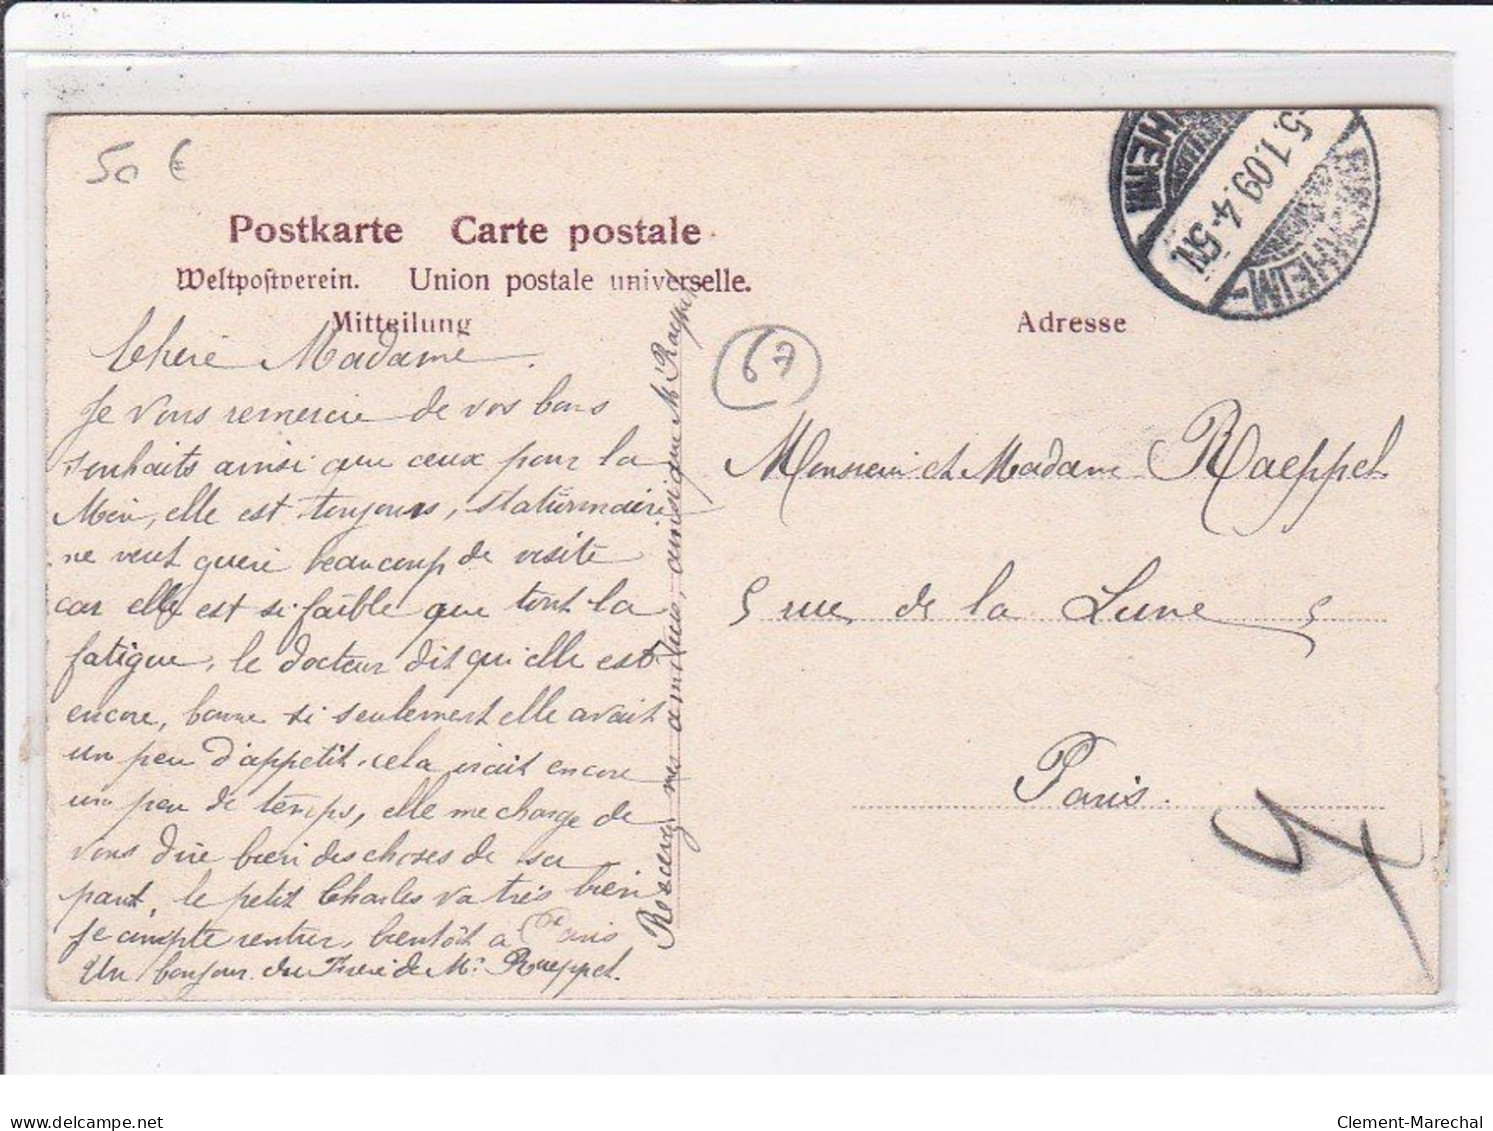 50 €
Postkarte Carte postale
Weltpostverein. Union postale universelle.
Mitteilung
Adresse
HEIM
5.1.09.4-5N.
HEIM
67
Chere Madame.
Je vous remercie de vos bons
souhaits ainsi que ceux pour la
Mien, elle est toujours, stationnaire
ne veut guere beaucoup de visite
car elle est si faible que tout la
fatigue, le docteur dit qu'elle est
encore, bonne si seulement elle avait
un peu d'appetit. cela irait encore
un peu de temps, elle me charge de
vous dire bien des choses de sa
part, le petit Charles va très bien
Je compte rentrer, bientôt a Paris
Un bonjour du Frere de Mr. Raeppel.
Recevez mes amities, ainsi que Mr Raeppel
Monsieur et Madame Raeppel
5 rue de la Lune 5
Paris.
Clement-Marechal
delcampe.net